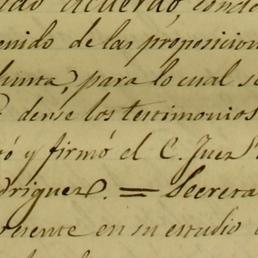 acuerdo, cond
enido de las proposicion
unta, para lo cual se
dense los testimonios
ó y firmó el C. Juez
driguez. = Secreta
resente en su estudio